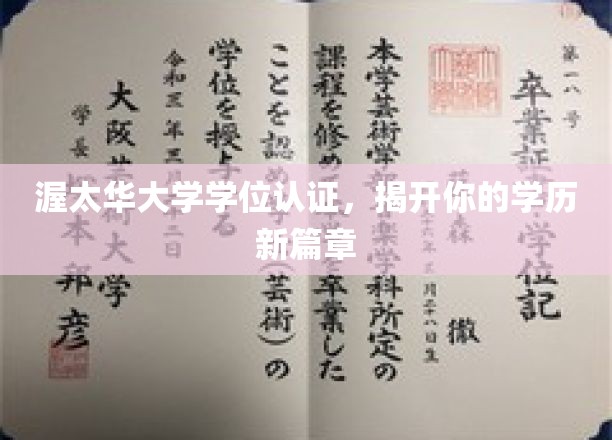 渥太华大学学位认证，揭开你的学历
新篇章
第一八号
卒業証書・学位記
森 徹
六年三月二十八日生
本学芸術学部 楽学科所定の
課程を修め を卒業した
ことを認め (芸術)の
学位を授与する
令和三年三月 二日
大阪芸術大学
学長 本邦彦